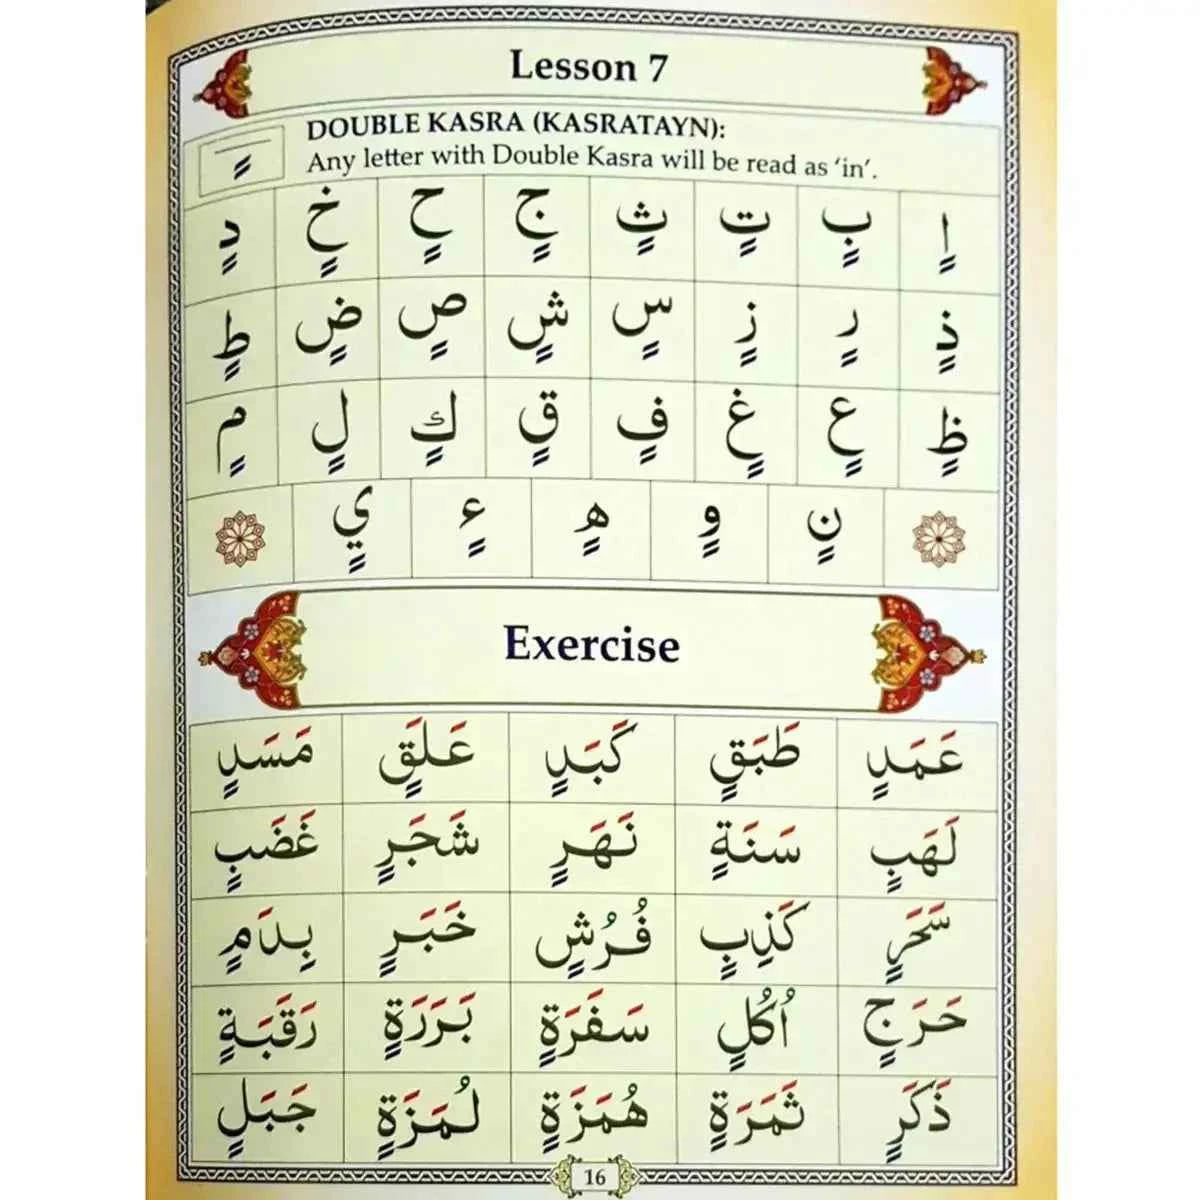 Lesson 7
DOUBLE KASRA (KASRATAYN):
Any letter with Double Kasra will be read as ‘in’.
ــٍ
اٍ بٍ تٍ ثٍ جٍ حٍ خٍ دٍ
ذٍ رٍ زٍ سٍ شٍ صٍ ضٍ طٍ
ظٍ عٍ غٍ فٍ قٍ كٍ لٍ مٍ
نٍ وٍ هٍ ءٍ يٍ
Exercise
عَمَدٍ طَبَقٍ كَبَدٍ عَلَقٍ مَسَدٍ
لَهَبٍ سَنَةٍ نَهَرٍ شَجَرٍ غَضَبٍ
سَحَرٍ كَذِبٍ فُرُشٍ خَبَرٍ بِدَمٍ
حَرَجٍ اُكُلٍ سَفَرَةٍ بَرَرَةٍ رَقَبَةٍ
ذَكَرٍ ثَمَرَةٍ هُمَزَةٍ لُمَزَةٍ جَبَلٍ
16